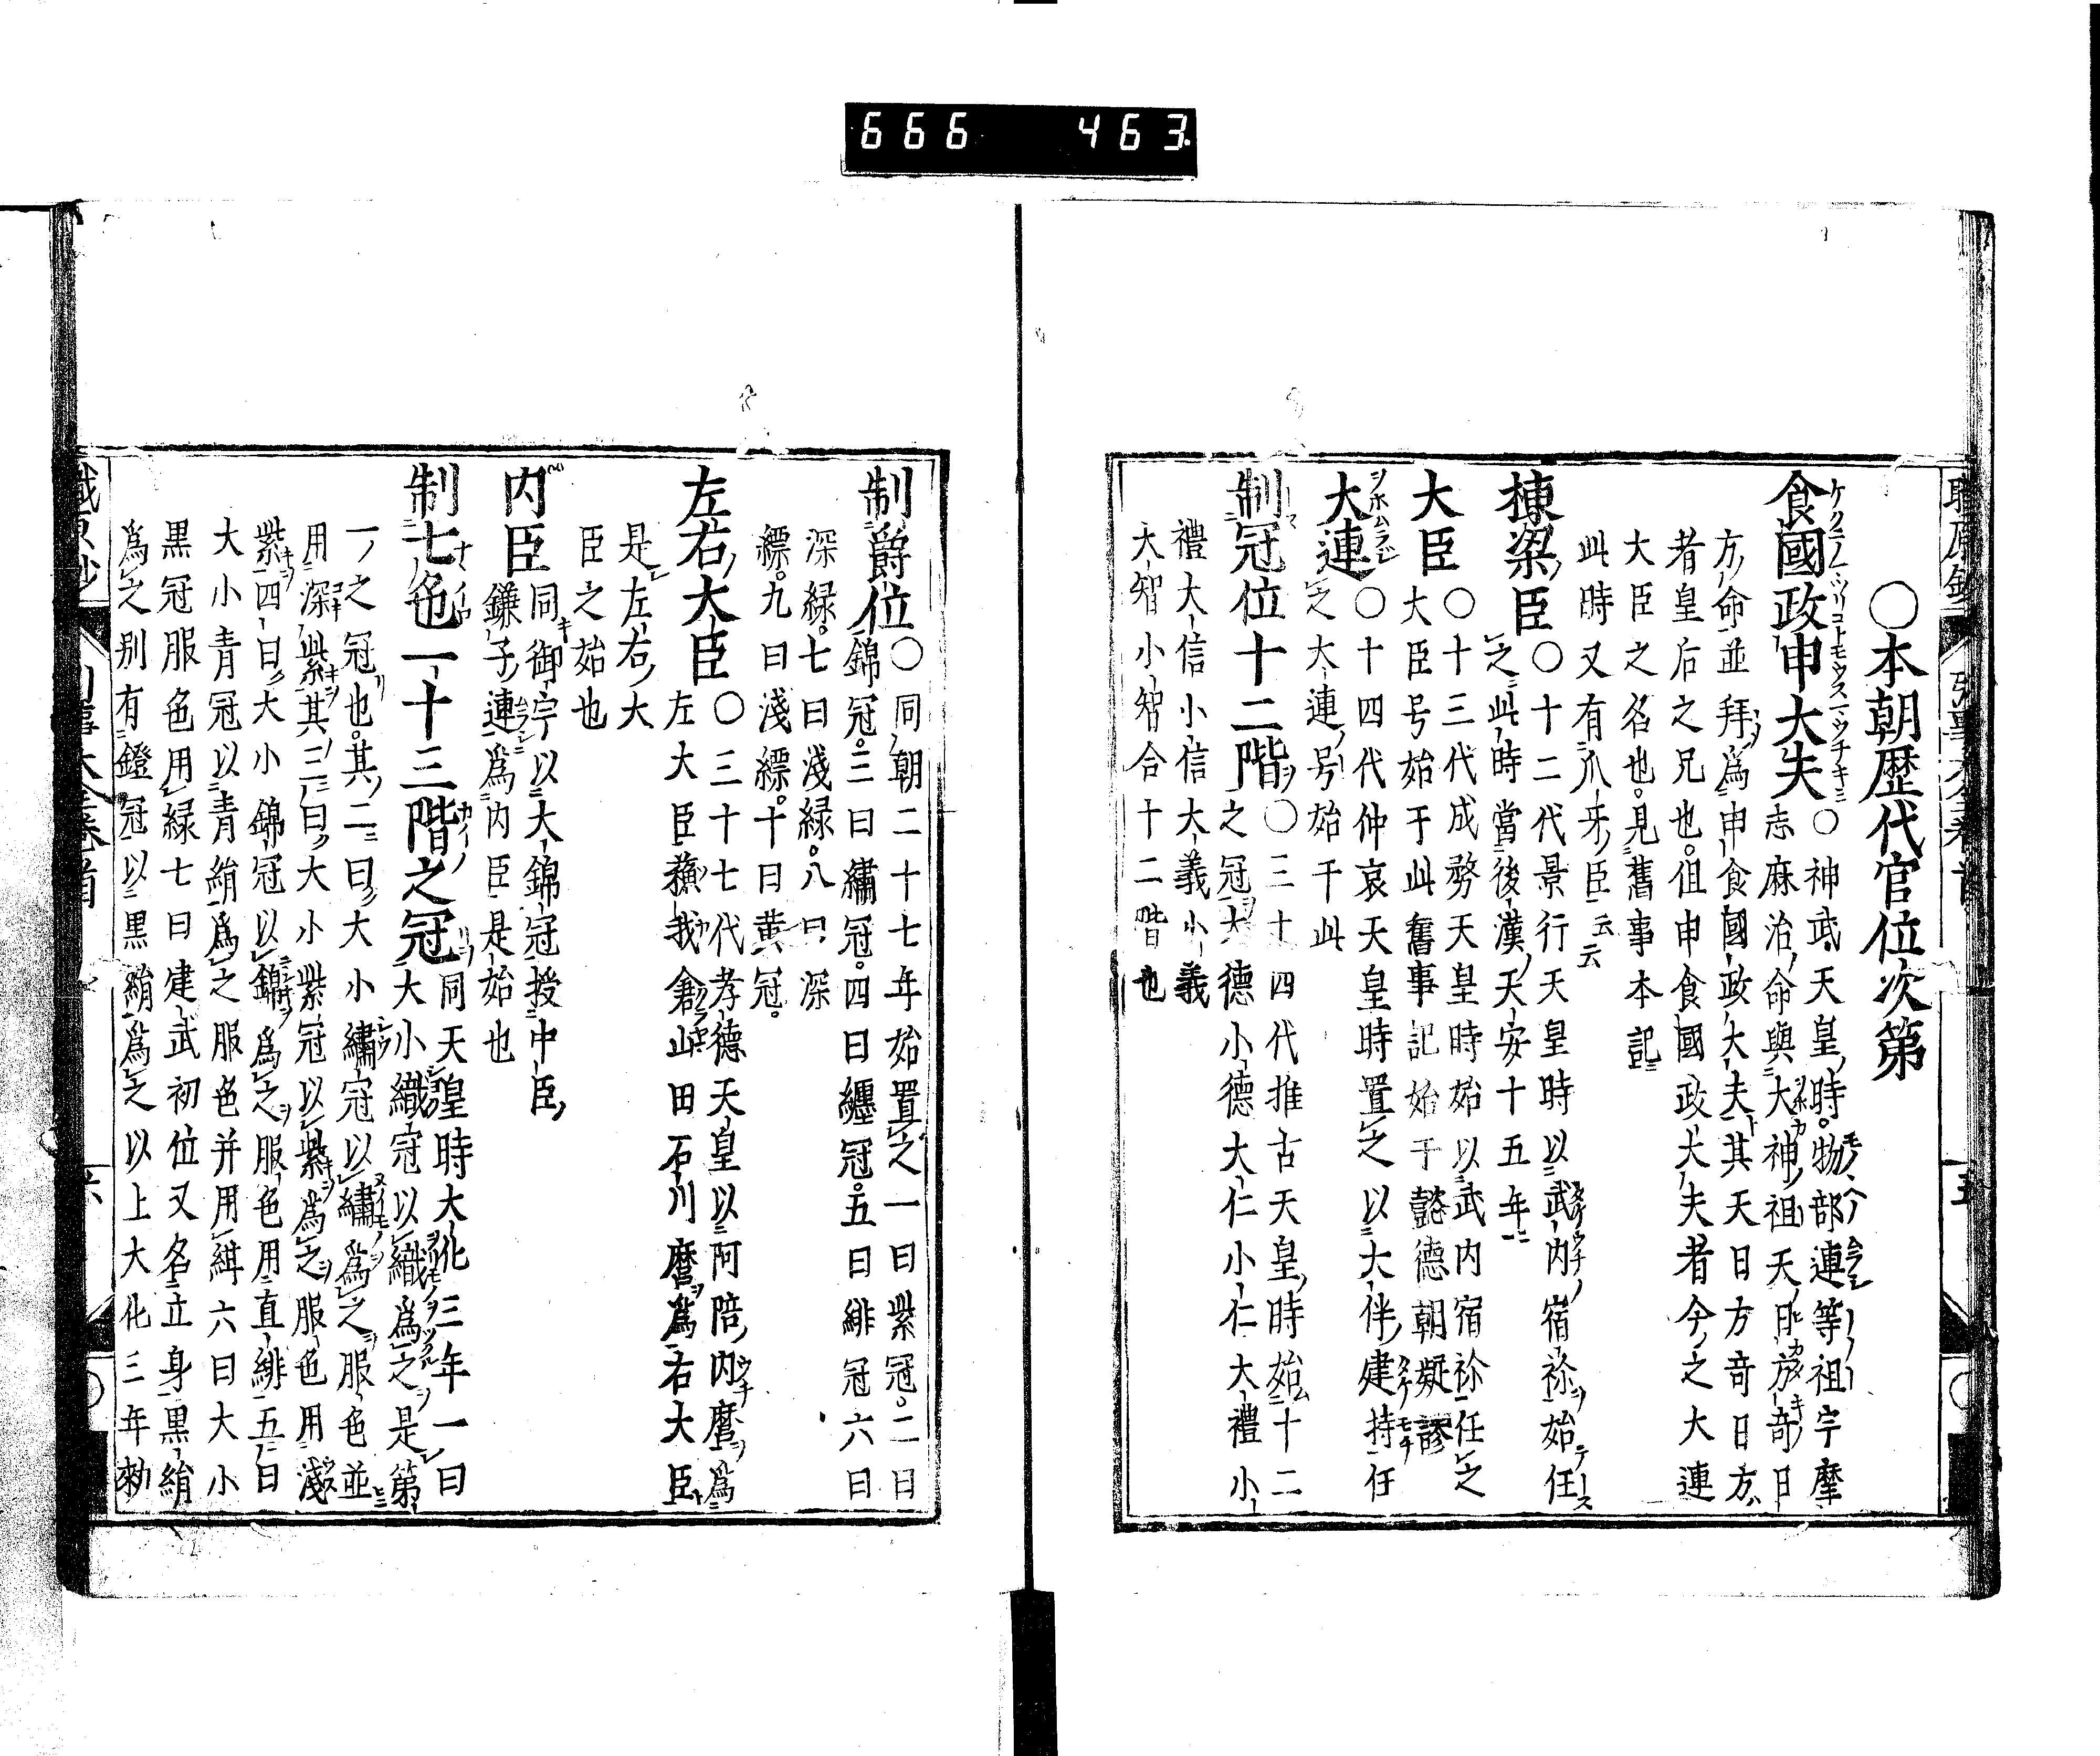 666 463
〇本朝歴代官位次第
食國政申大夫〇神武天皇時物部連等祖宇摩
志麻治命與大神祖天日方奇日
方命並拜爲申食國政大夫其天日方奇日方
者皇后之兄也但申食國政大夫者今之大連
大臣之名也見舊事本記
此時又有爪牙臣云云
棟梁臣〇十二代景行天皇時以武内宿祢始任
之此時當後漢天安十五年
大臣〇十三代成務天皇時始以武内宿祢任之
大臣号始于此舊事記始于懿德朝疑謬
大連〇十四代仲哀天皇時置之以大伴建持任
之大連号始于此
制冠位十二階〇三十四代推古天皇時始十二
之冠大德小德大仁小仁大禮小
禮大信小信大義小義
大智小智合十二階也
制爵位〇同朝二十七年始置之一曰紫冠二曰
錦冠三曰繡冠四曰纒冠五曰緋冠六曰
深緑七曰淺緑八曰深
縹九曰淺縹十曰黄冠
左右大臣〇三十七代孝德天皇以阿陪内麿爲
左大臣蘓我倉山田石川麿爲右大臣
是左右大
臣之始也
内臣同御宇以大錦冠授中臣
鎌子連爲内臣是始也
制七色一十三階之冠同天皇時大化三年一曰
大小織冠以織爲之是第
一之冠也其二曰大小繡冠以繡爲之服色並
用深紫其三曰大小紫冠以紫爲之服色用淺
紫四曰大小錦冠以錦爲之服色用直緋五曰
大小青冠以青絹爲之服色并用緋六曰大小
黒冠服色用緑七曰建武初位又名立身黒絹
爲之别有鐙冠以黒絹爲之以上大化三年勑